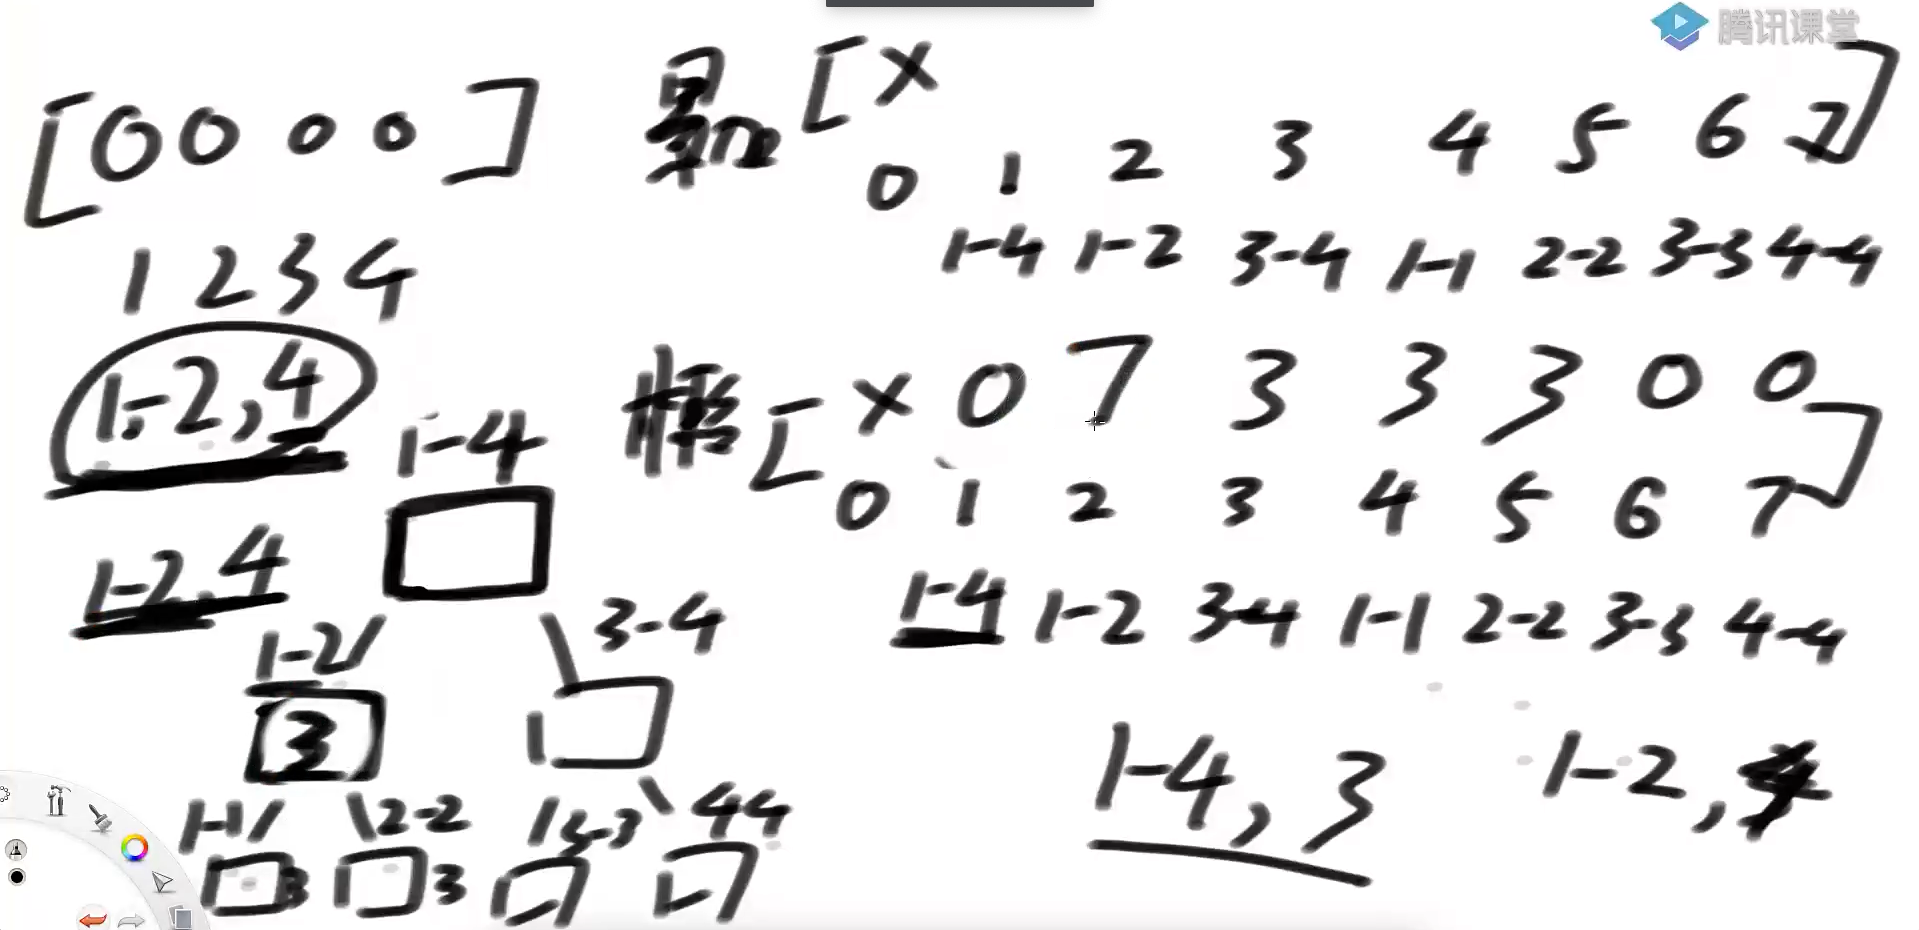 腾讯课堂
[0 0 0 0]
1 2 3 4
1-2,4
1-2,4
1-4
1-2 3-4
3
1-1 2-2 3-3 4 4
3 3
累加 [X
0 1 2 3 4 5 6 7]
1-4 1-2 3-4 1-1 2-2 3-3 4-4
懒 [X 0 7 3 3 3 0 0]
0 1 2 3 4 5 6 7
1-4 1-2 3-4 1-1 2-2 3-3 4-4
1-4,3 1-2,4